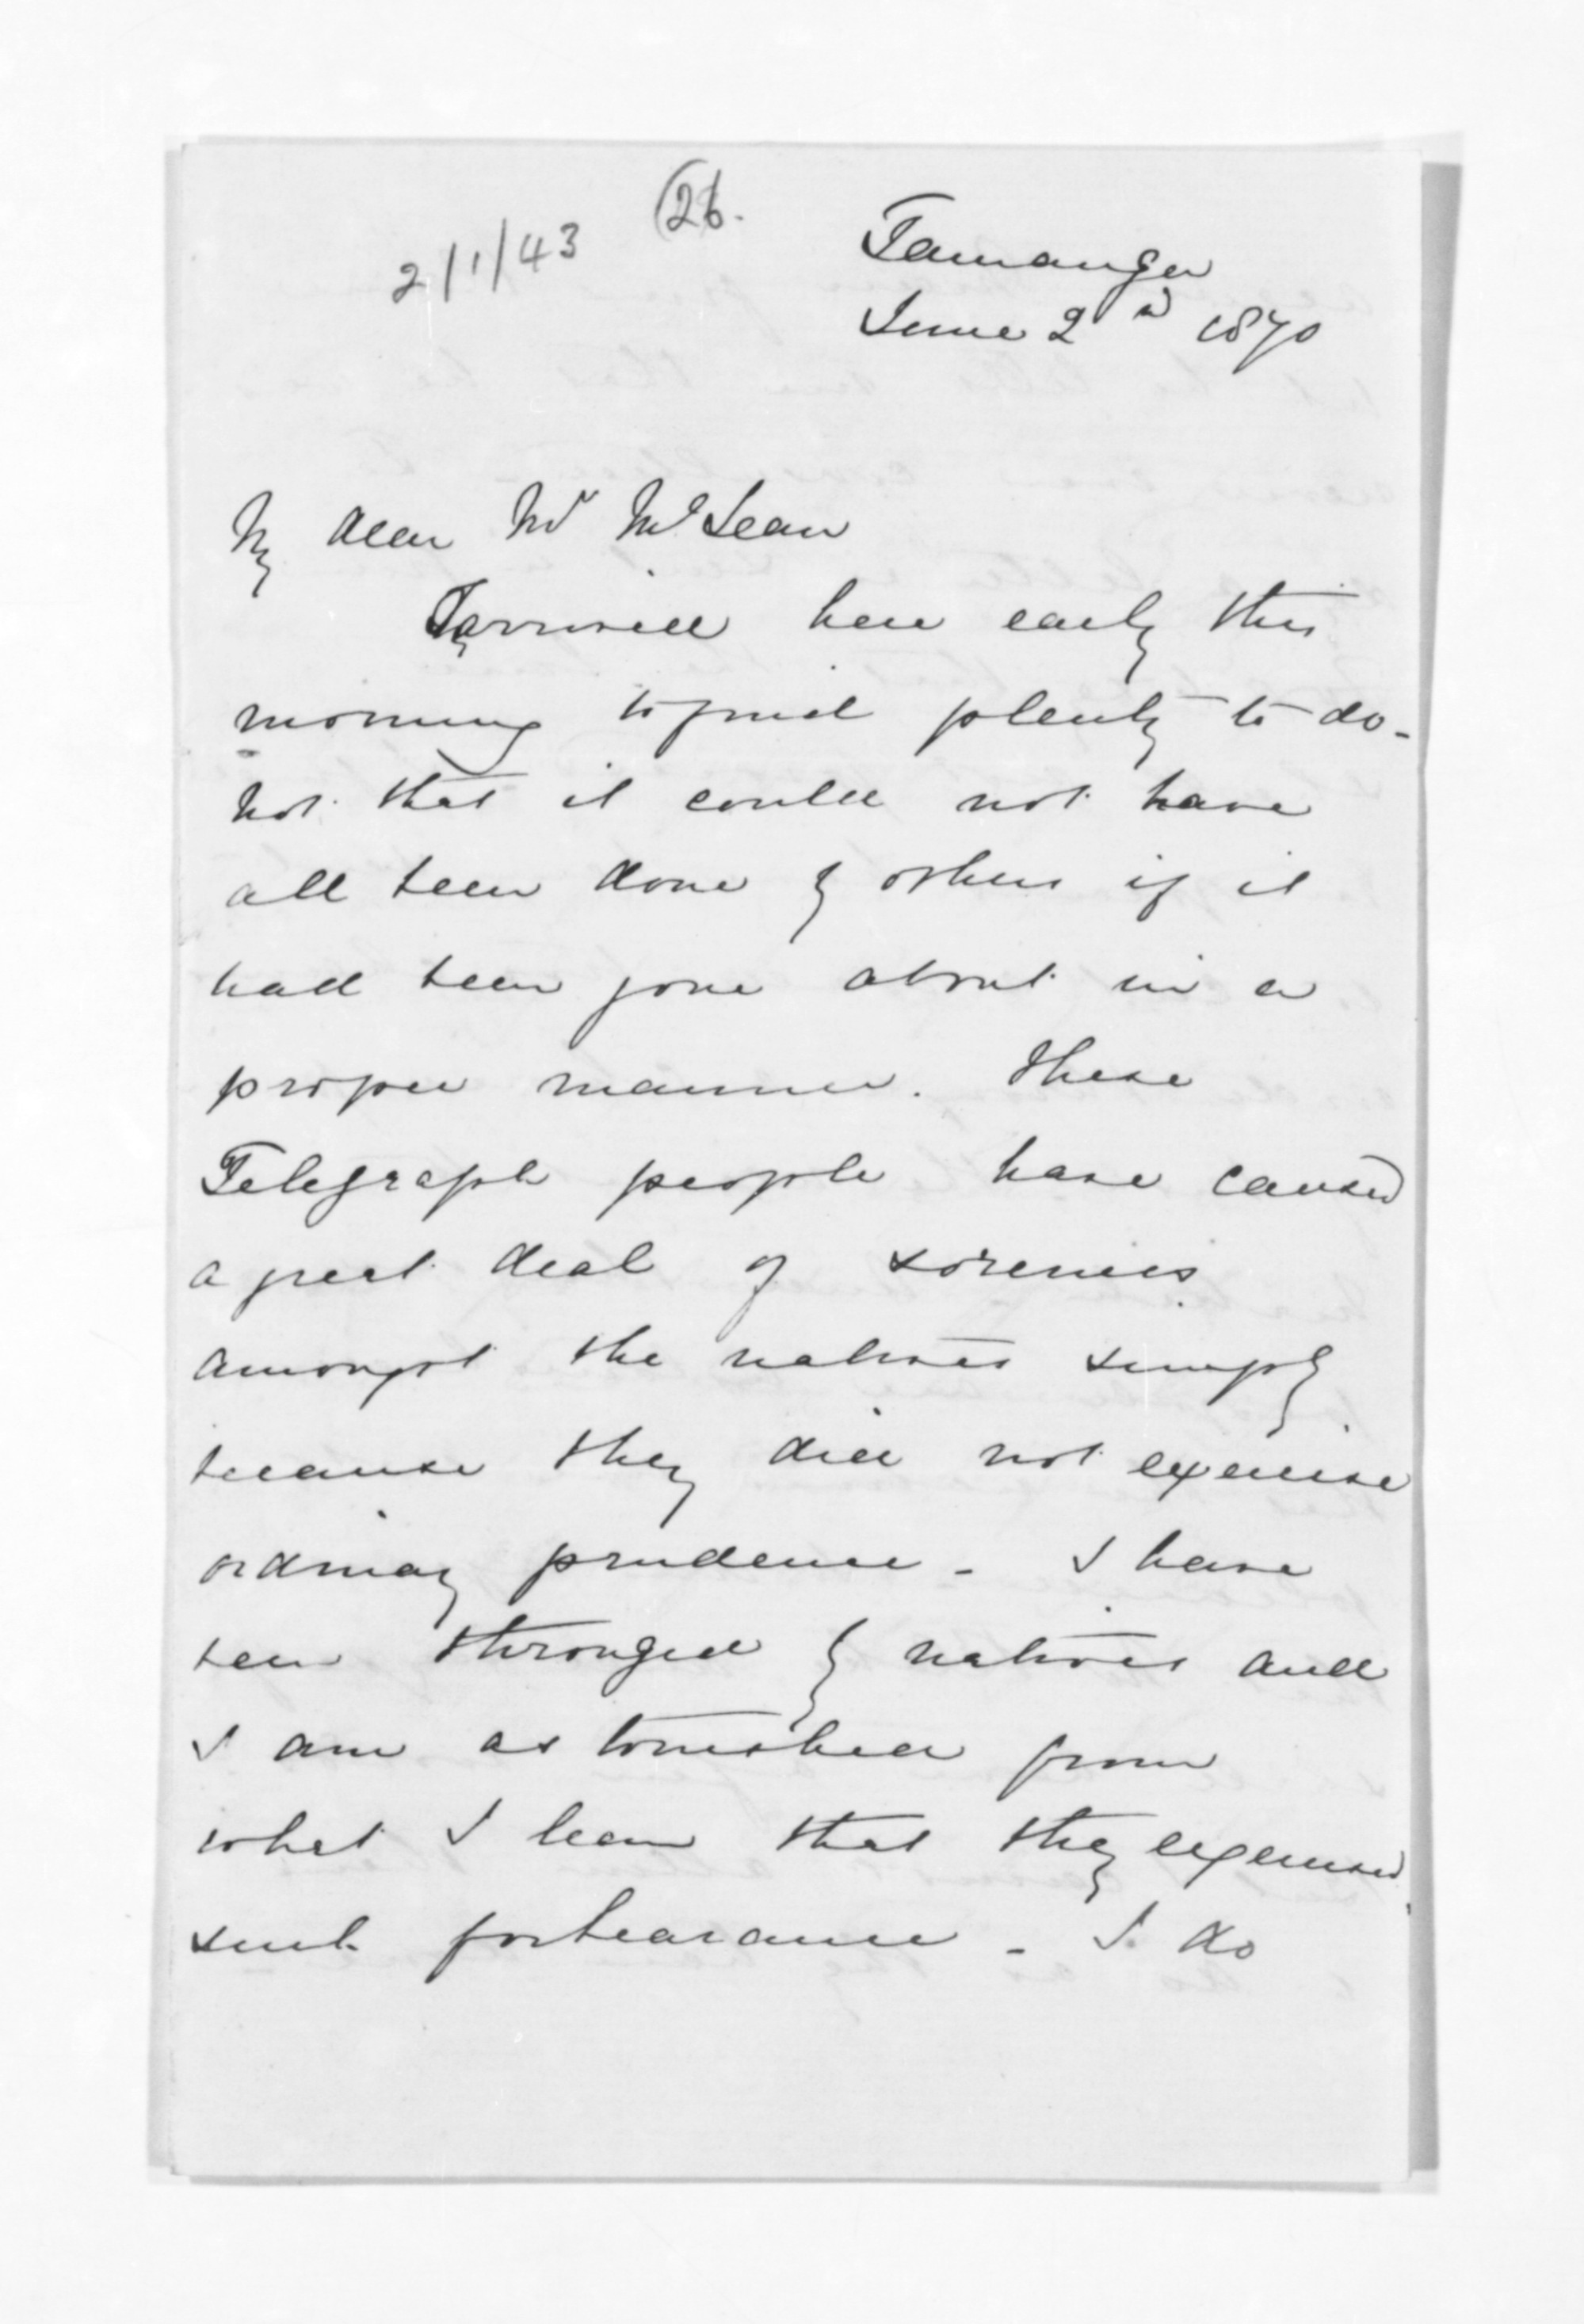 2/1/43
(26.
Tauranga
June 2d 1870
My dear Mr McLean
I arrived here early this
morning to find plenty to do -
not that it could not have
all been done by others if it
had been gone about in a
proper manner. These
Telegraph people have caused
a great deal of soreness
amongst the natives simply
because they did not exercise
ordinary prudence - I have
been thronged by natives and
I am astonished from
what I learn that they exercised
such forbearance - I do